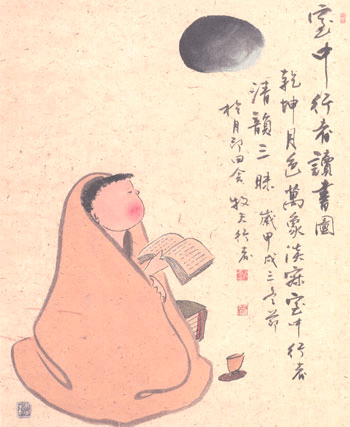 室中行者讀書圖
乾坤月色萬象淡寂室中行者
清韻三昧 歲甲戌三冬節
於月印田舍 牧夫行者